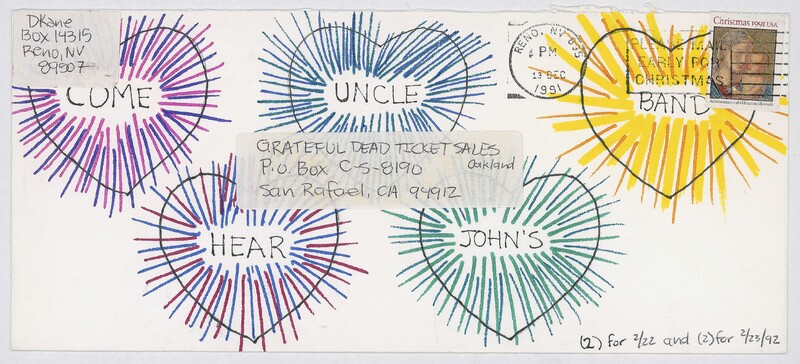 DKane
Box 14315
Reno, NV
89507
RENO, NV 895
PM
13 DEC
1991
PLEASE MAIL
EARLY FOR
CHRISTMAS
Christmas 1991 USA
COME
UNCLE
BAND
GRATEFUL DEAD TICKET SALES
P.O. Box C-S-8190 Oakland
San Rafael, CA 94912
HEAR
JOHN'S
(2) for 2/22 and (2) for 2/23/92